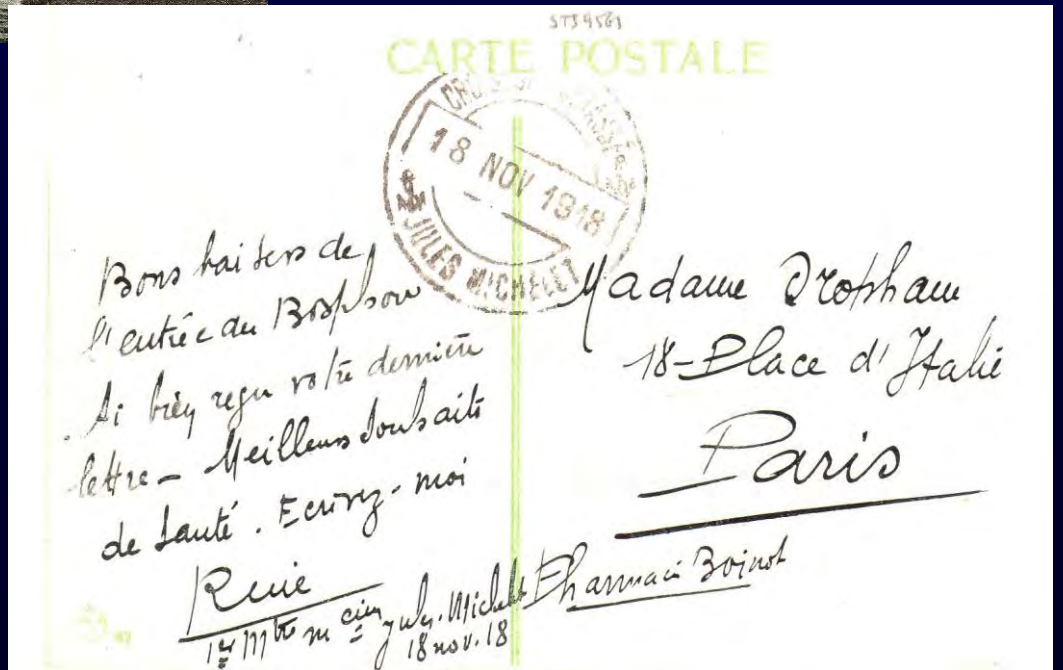 STJ9561
CARTE POSTALE
18 NOV 1918
JULES MICHELET
Bons baisers de
l'entrée du Bosphore
Ai bien reçu votre dernière
lettre - Meilleurs souhaits
de santé. Ecrivez-moi
René
1er Mtre m cien Jules-Michelet
18 nov. 18
Madame
18-Place d'Italie
Paris
Pharmacie Boinot